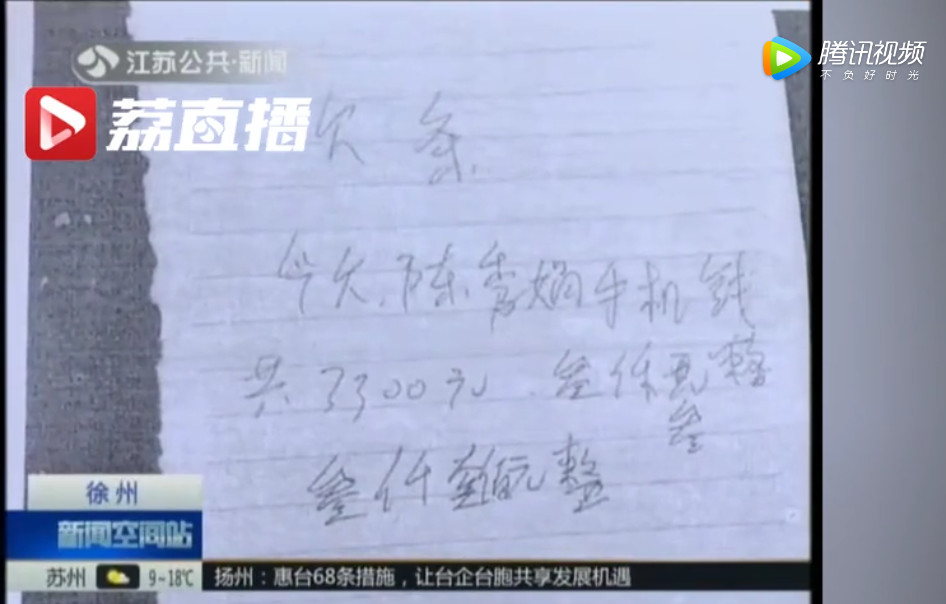 江苏公共·新闻
腾讯视频
不负好时光
荔直播
欠条
今欠陈秀娟手机钱
共3300元.叁仟 整
叁
叁仟叁佰元整
徐州
新闻空间站
苏州 9-18℃ 扬州:惠台68条措施,让台企台胞共享发展机遇